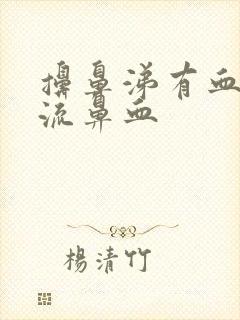 擤鼻涕有血
流鼻血
楊清竹